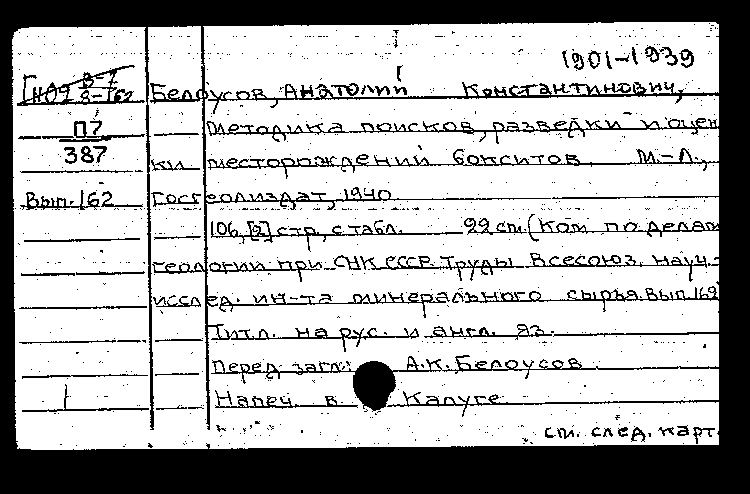 1901-1939
Белоусов, Анатолий Константинович,
П7
387
Методика поисков, разведки и оцен
ки месторождений бокситов. М.-Л.,
Вып. 162
Госгеолиздат, 1940
106, [2] стр, с табл. 22 см (Ком по делам
геологии при СНК СССР. Труды Всесоюз. науч-
исслед. ин-та минерального сырья. Вып 162
Титл. на рус. и англ. яз.
Перед загл.: А.К. Белоусов
Напеч. в Калуге
см. след. карт.